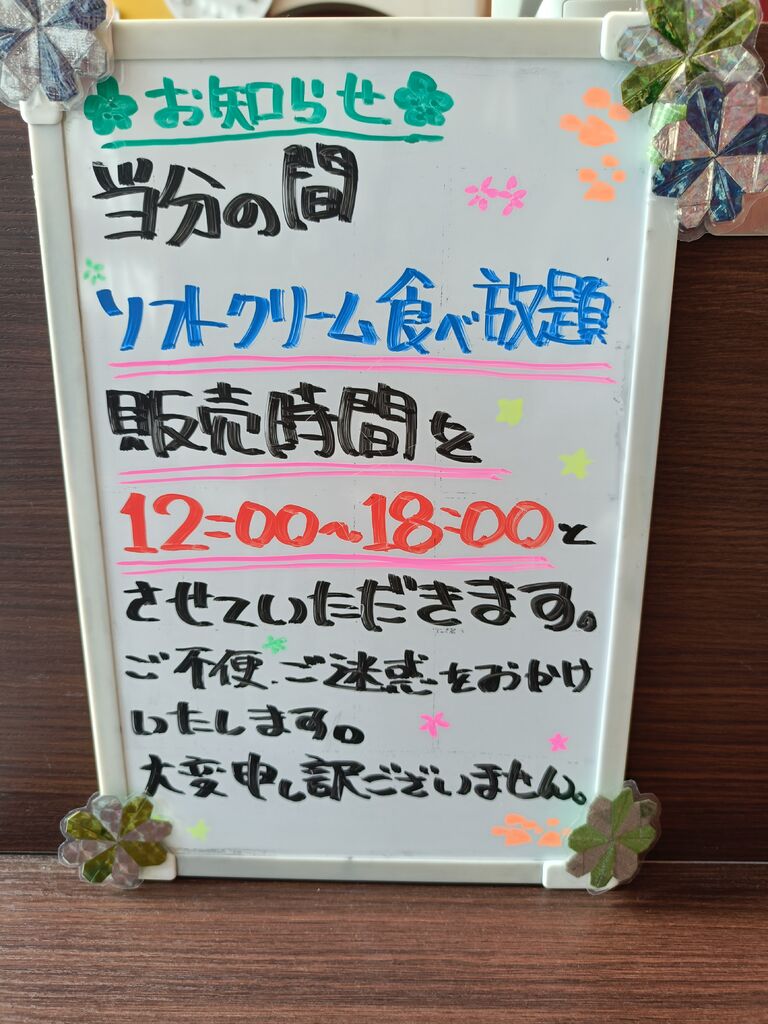 お知らせ
当分の間
ソフトクリーム食べ放題
販売時間を
12:00～18:00と
させていただきます。
ご不便、ご迷惑をおかけ
いたします。
大変申し訳ございません。